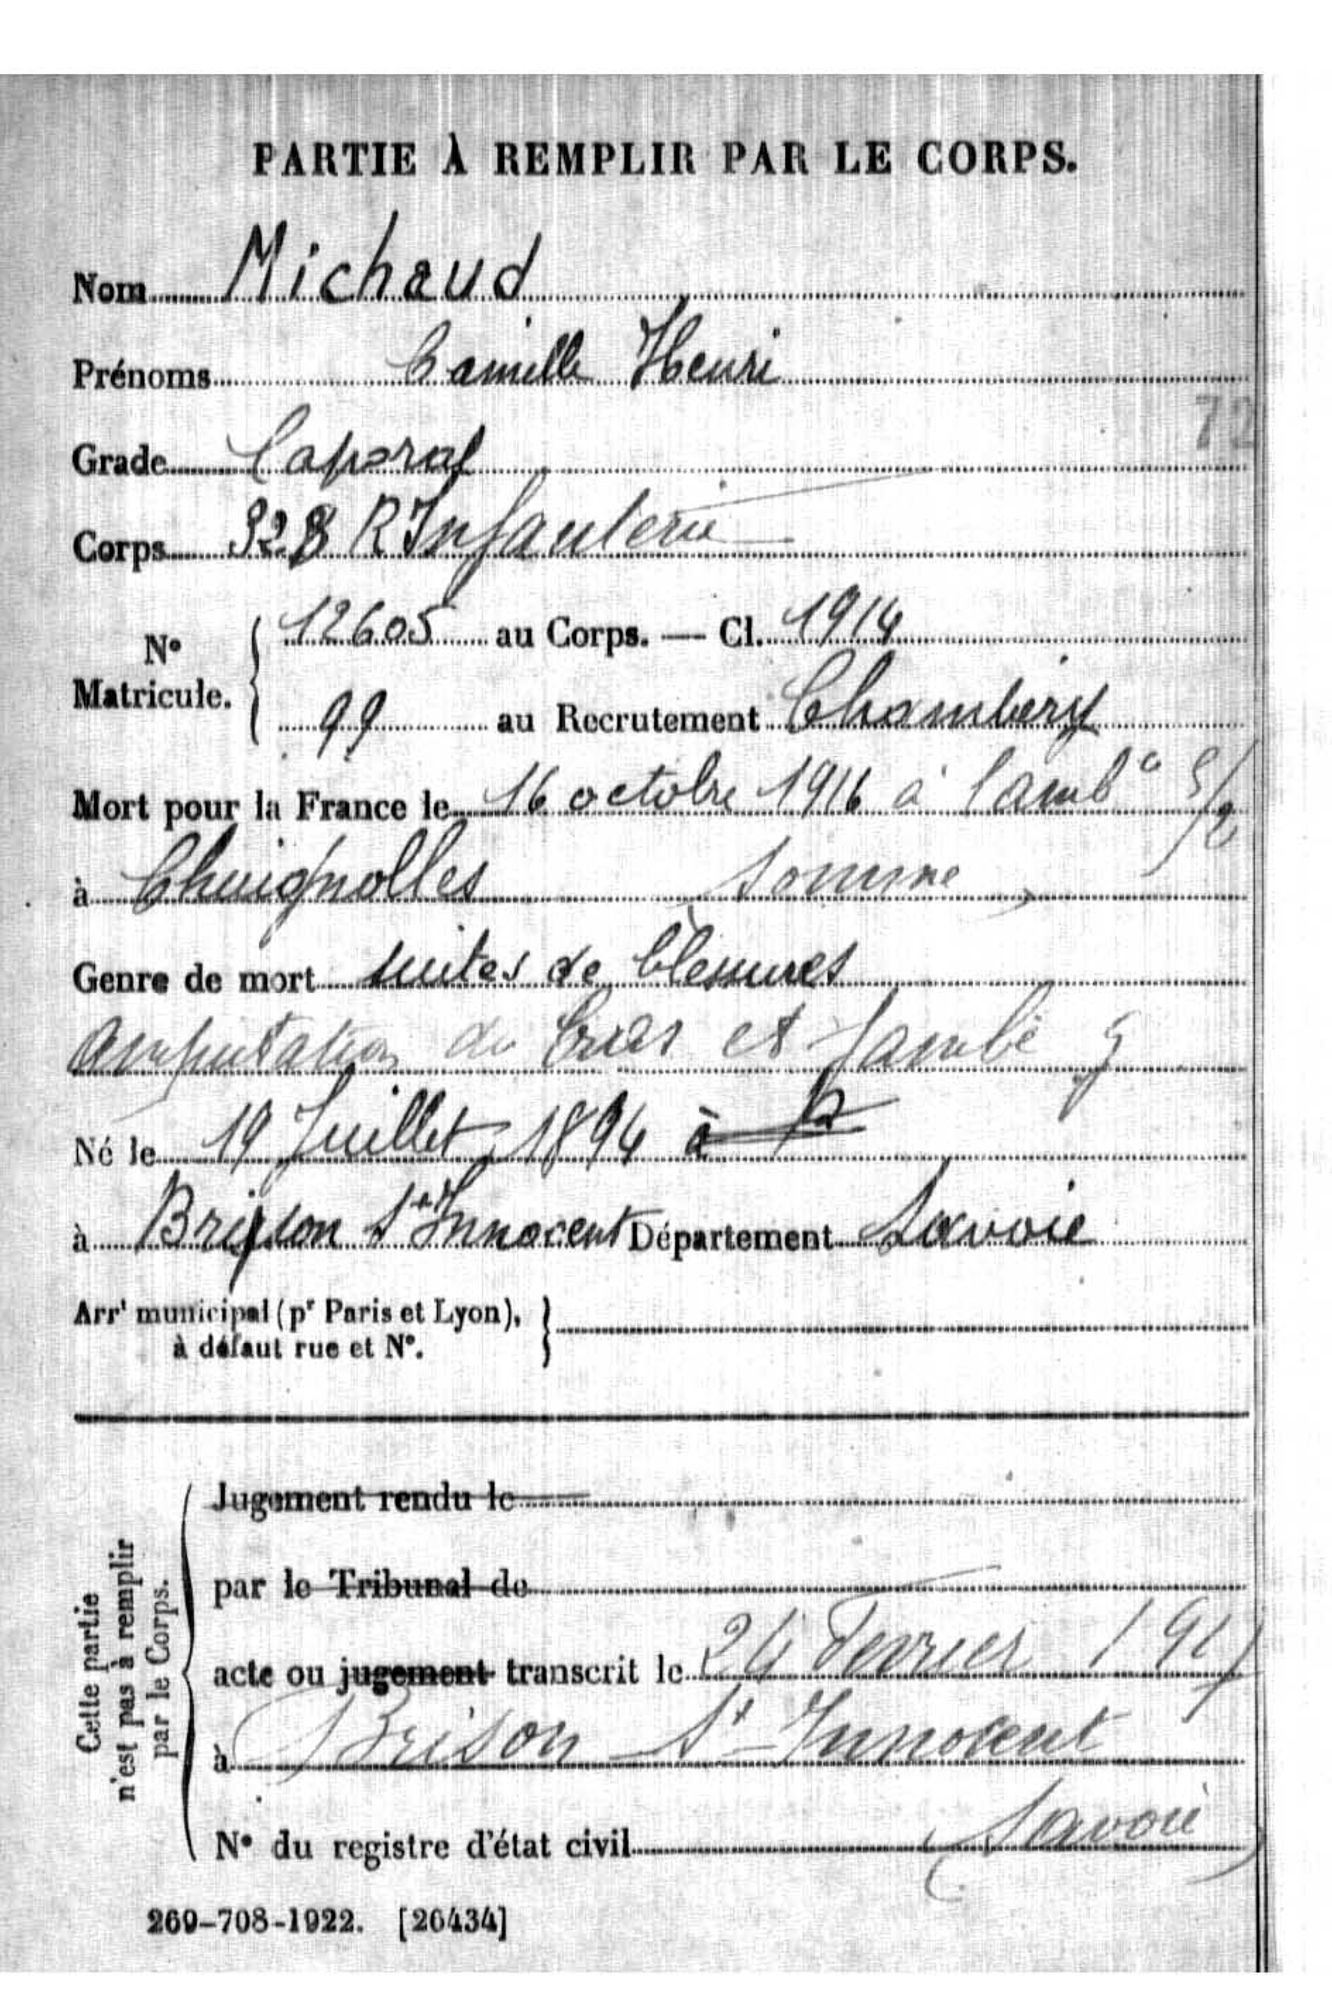 PARTIE À REMPLIR PAR LE CORPS.
Nom Michaud
Prénoms Camille Henri
72
Grade Caporal
Corps 328 R Infanterie
N° Matricule. 12605 au Corps. — Cl. 1914
99 au Recrutement Chambéry
Mort pour la France le 16 octobre 1916 à l'amb^e 5/2
à Chuignolles Somme
Genre de mort suites de blessures
Amputation du bras et jambe g
Né le 19 Juillet 1894 à
à Brison S^t Innocent Département Savoie
Arr^t municipal (p^r Paris et Lyon),
à défaut rue et N°.
Cette partie
n'est pas à remplir
par le Corps.
Jugement rendu le
par le Tribunal de
acte ou jugement transcrit le 24 Fevrier 1917
à Brison S^t Innocent
N° du registre d'état civil Savoie
269-708-1922. [26434]